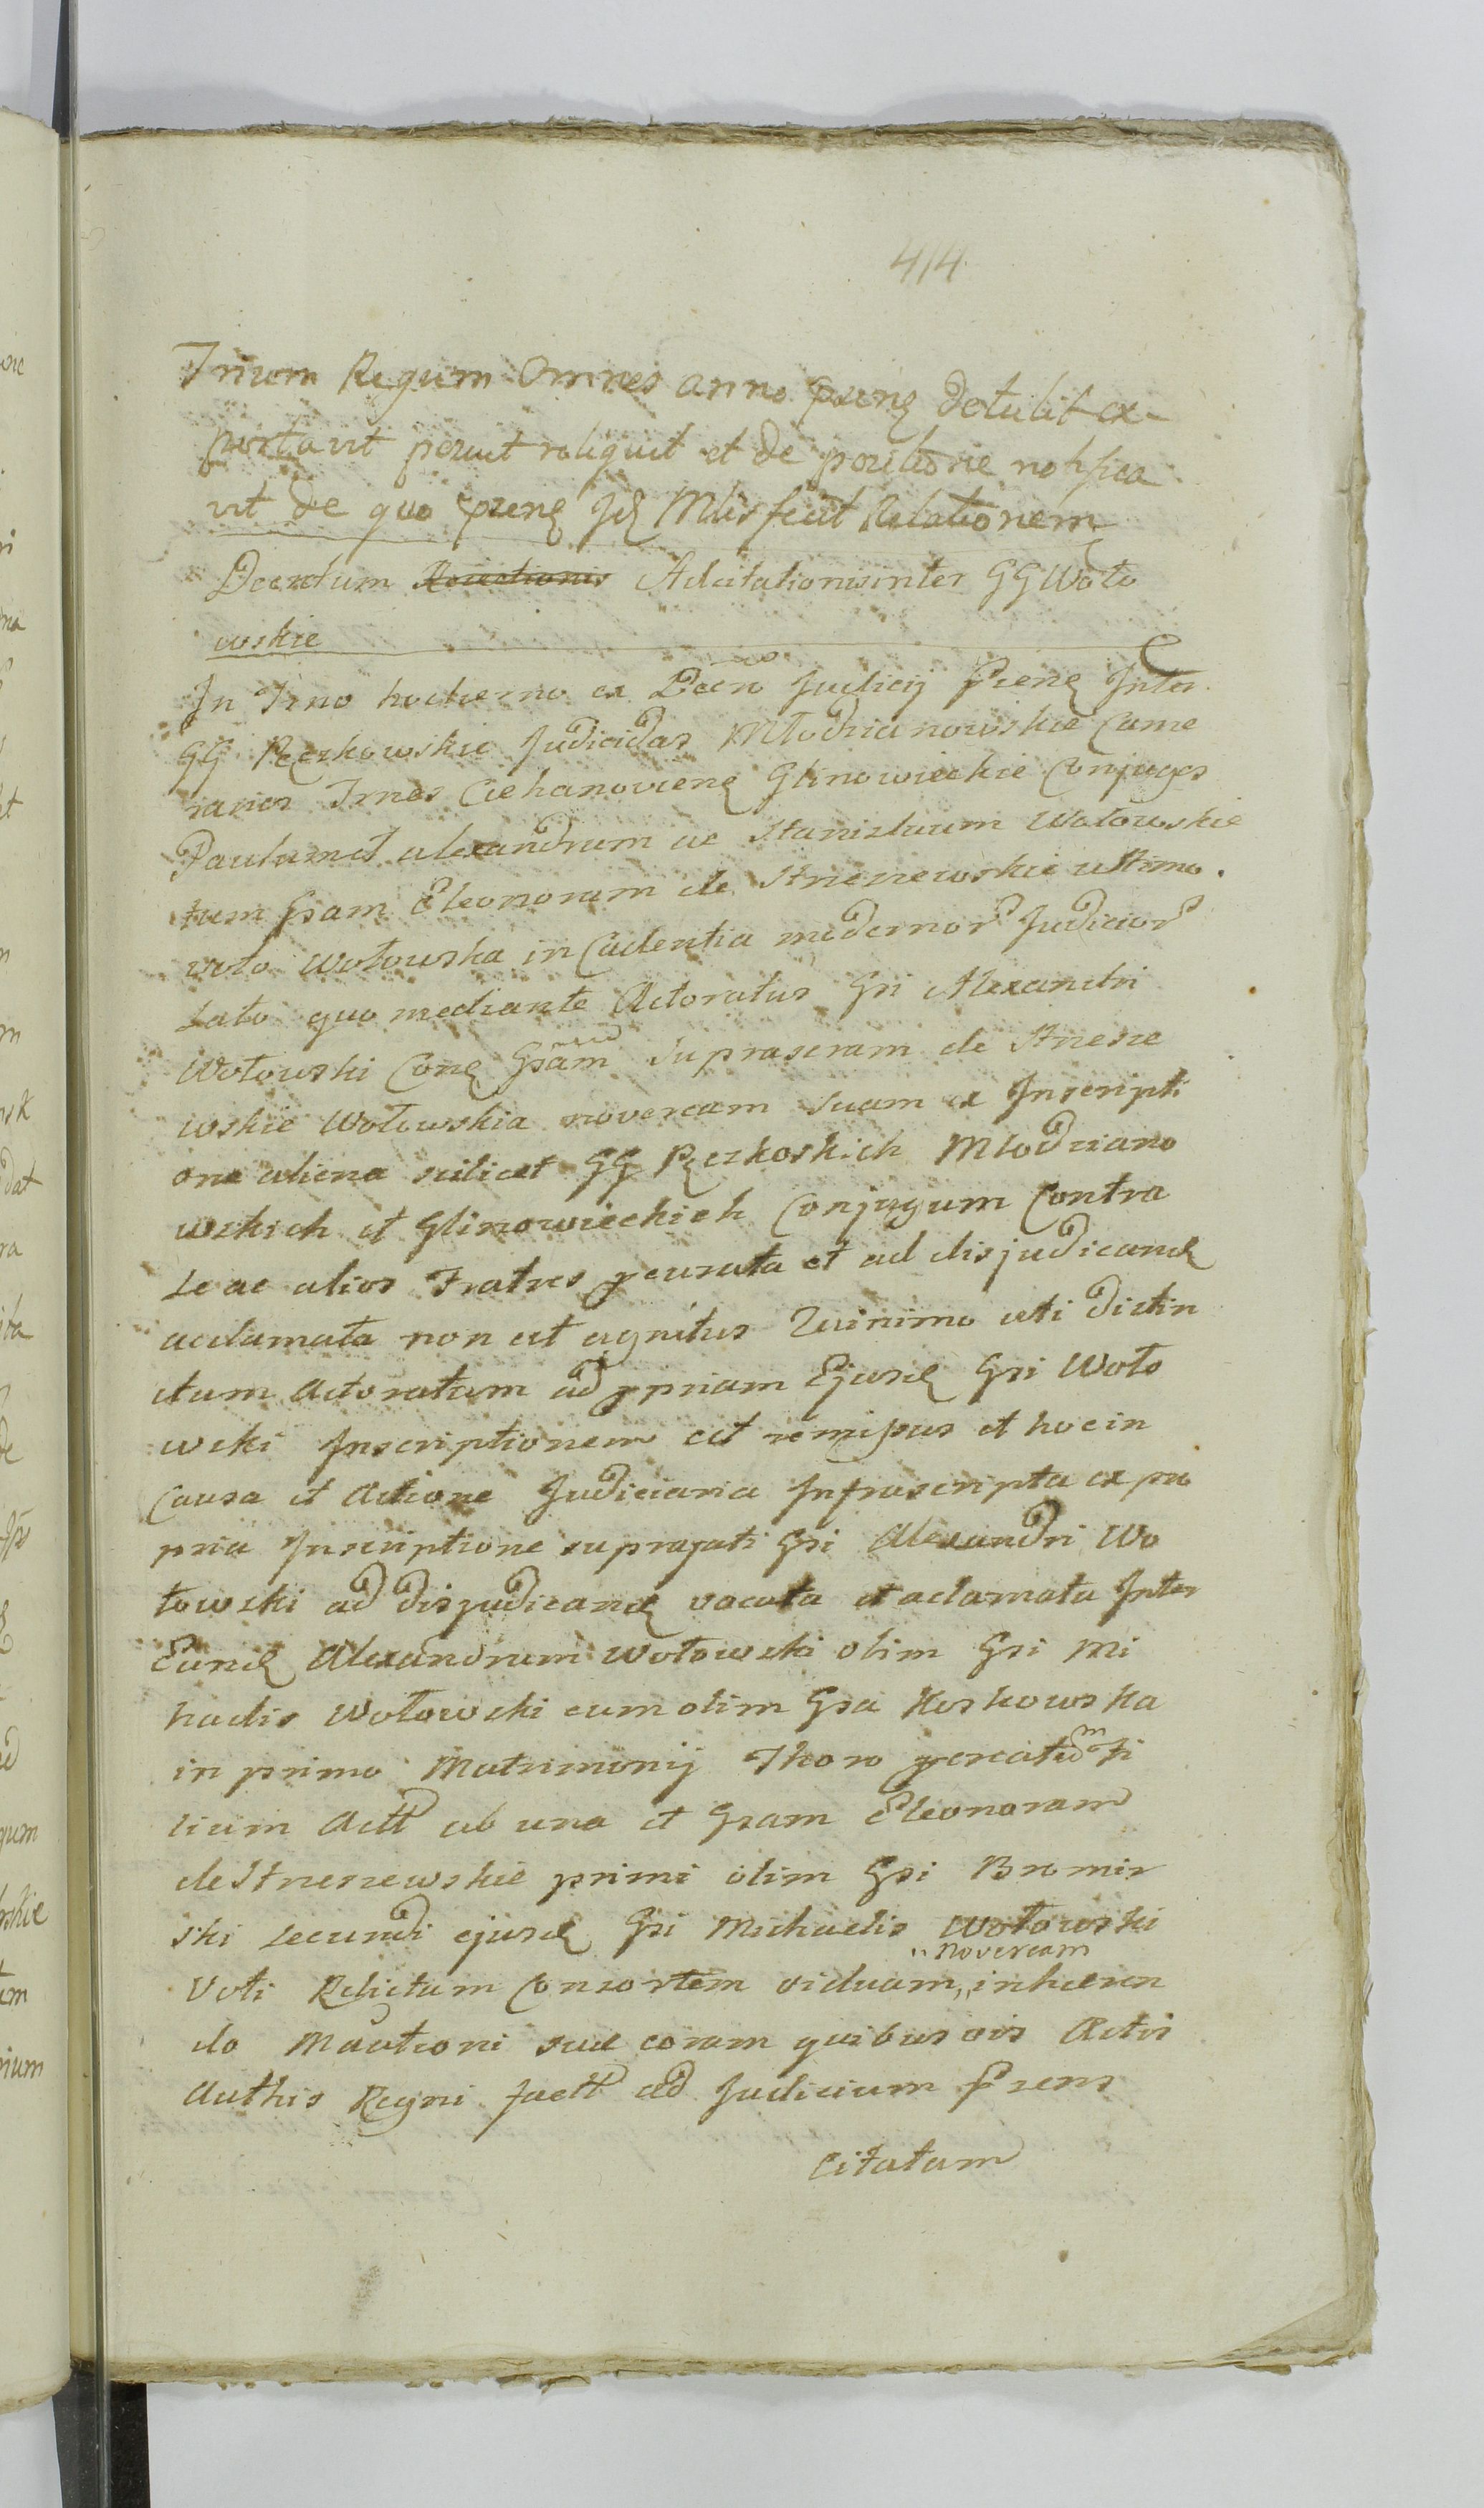 414
Trium Regum Omnes anno pren detulit ex
portavit posuit reliquit et de positione notifica
vit de quo pren Id Mlis fecit Relationem
Decretum Adcitationis inter GG Woło
wskie
In Trno hodierno ex Decro Judicij Pren Inter
GG Pęczkowskie Judicidas Młodzianowskie Came
rarios Trnes Ciehanovien Glinowieckie Conjuges
Paulum et alexandrum ac Stanislaum Wołowskie
tum Gsam Eleonoram de Strzeszewskie ultimo
voto Wołowska in Cadentia modernor Judicior
Lato quo mediante Actoratus Gsi Alexandri
Wołowski Con Gsam suprascram de Strzesze
wskie Wołowskia novercam suam ex Inscripti
one aliena scilicet GG Pęczkoskich Młodziano
wskich et Glinowieckich Conjugum Contra
se ac alios Fratres pcurata et ad disjudicand
acclamata non est agnitus Quinimo uti distin
ctum Actoratum ad ppriam Ejusd Gsi Woło
wski Inscriptionem est remissus et hoc in
Causa et Actione Judiciaria Infrascripta ex pro
pria Inscriptione suprafati Gsi Alexandri Wo
łowski ad disjudicand vocata et aclamata Inter
Eund Alexandrum Wołowski olim Gsi Mi
haelis Wołowski cum olim Gsa Koskowska
in primo Matrimonij Thoro pcreatum fi
lium Actt ab una et Gsam Eleonoram
de Strzeszewskie primi olim Gsi Bromir
ski secundi ejusd Gsi Michaelis Wołowski
Voti Relictam Consortem viduam,, ,,novercam inhæren
do Mautioni suæ coram quibusvis Actis
Authis Regni factt ad Judicium Prens
Citatam